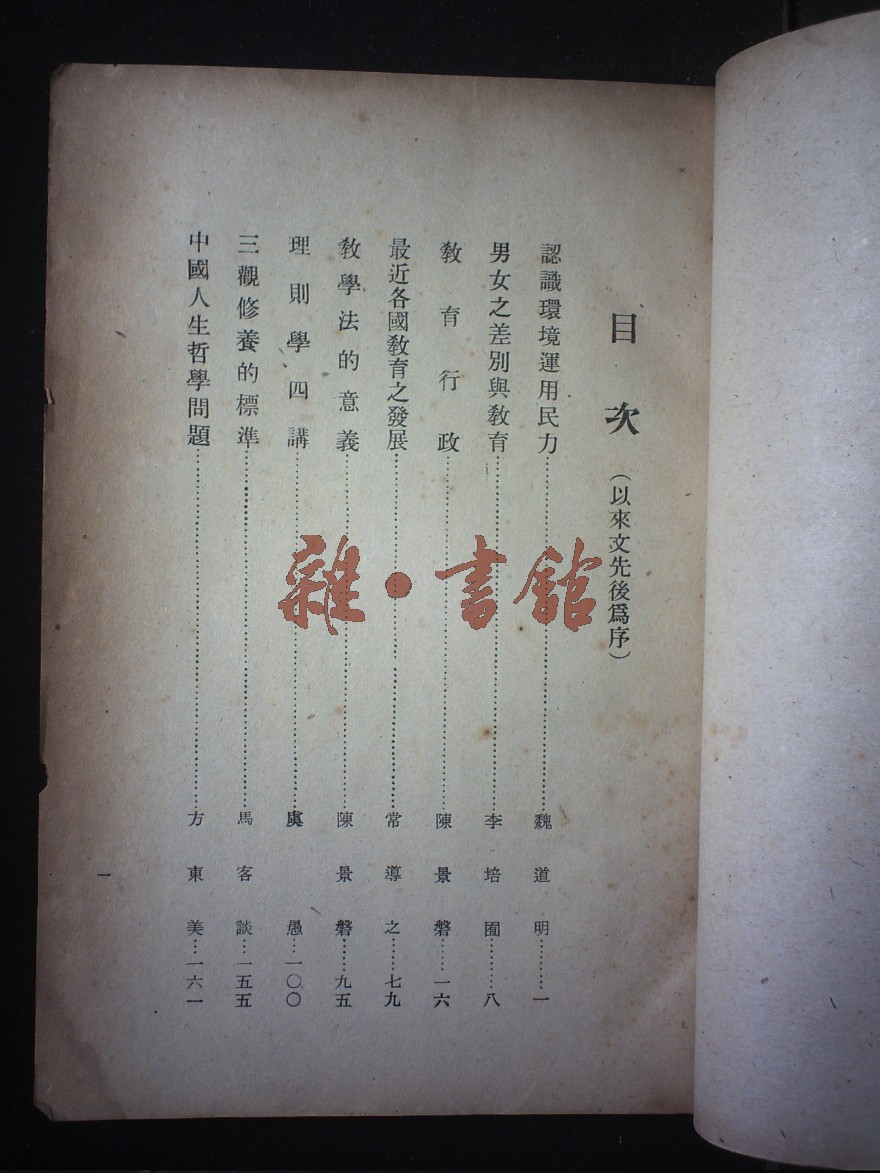 目次（以來文先後爲序）
認識環境運用民力………魏道明………一
男女之差別與教育………李培囿………八
教育行政………陳景磐……一六
最近各國教育之發展………常導之……七九
教學法的意義………陳景磐……九五
理則學四講………虞愚…一〇〇
三觀修養的標準………馬客談…一五五
中國人生哲學問題………方東美…一六一
一
雜·書館